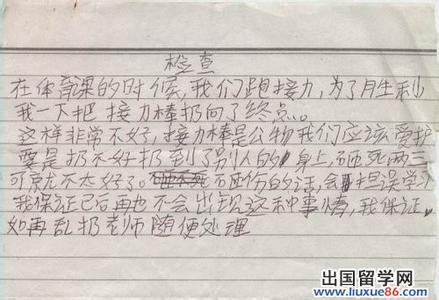 检查
在体育课的时候,我们跑接力,为了胜利
我一下把接力棒扔向了终点。
这样非常不好,接力棒是公物我们应该爱护
要是扔不好扔到了别人的身上,砸死两三
可就不太好了。砸伤的话,会担误学习
我保证已后再也不会出现这种事情,我保证
如再乱扔老师随便处理
出国留学网
www.liuxue86.com